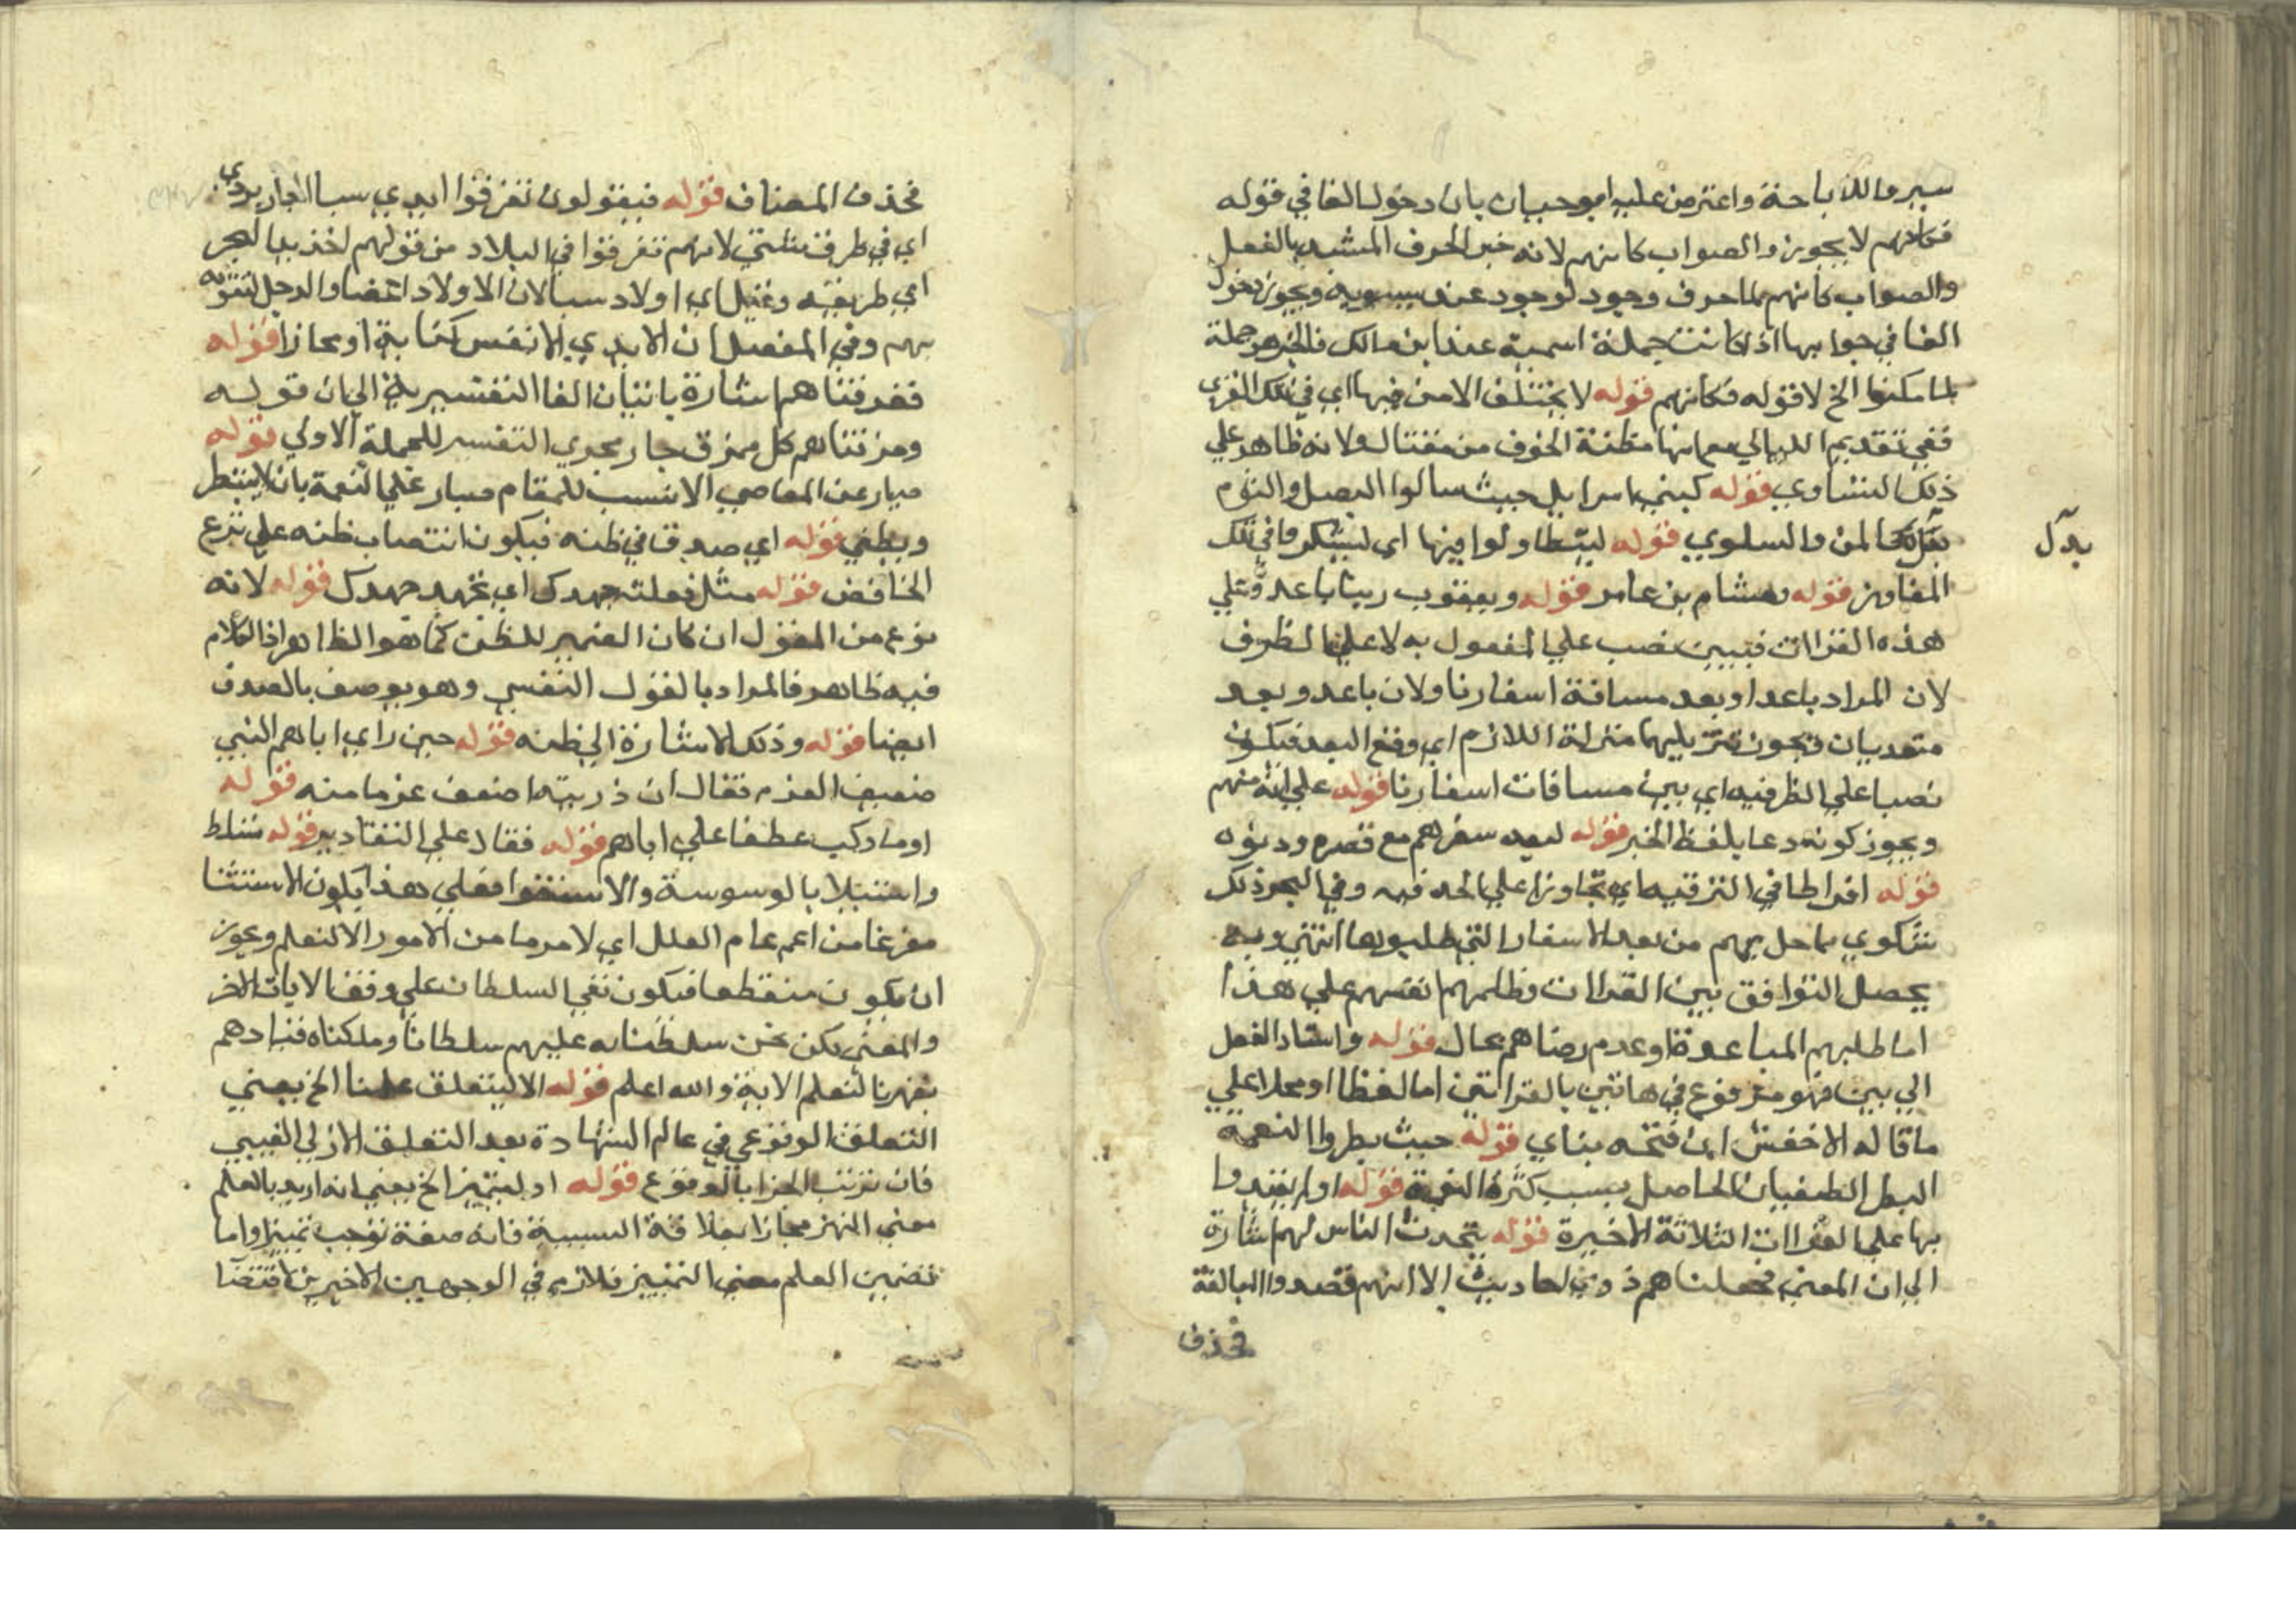 سيروا للاباحة واعترض عليه ابو حيان بان دخول الفا في قوله
فكانهم لا يجوز والصواب كانهم لانه خبر الحرف المشبه بالفعل
والصواب كانهم لما حرف وجود لوجود عند سيبويه ويجوز دخول
الفا في جوابها اذا كانت جملة اسمية عند ابن مالك فالخبر هو جملة
لما مكنوا الخ لا قوله فكانهم قوله لا يختلف الامن فيها اي في تلك القري
ففي تقديم الليالي مع انها مظنة الخوف من مغتال ولانه ظاهر علي
ذلك التساوي قوله كبني اسرايل حيث سالوا البصل والثوم
بدل المن والسلوي قوله ليتطاولوا فيها اي ليتكبروا في تلك
بدل
المفاوز قوله وهشام بن عامر قوله ويعقوب ربنا باعد وعلي
هذه القراات فبين نصب علي المفعول به لا علي الظرف
لان المراد باعد او بعد مسافة اسفارنا ولان باعد وبعد
متعديان فيجوز تنزيليهما منزلة اللازم اي وقع البعد فيكون
نصبا علي الظرفيه اي بين مسافات اسفارنا قوله علي انه منهم
ويجوز كونه دعا بلفظ الخبر قوله لبعد سفرهم مع قصره ودنوه
قوله افراطا في الترفيه اي تجاوزا علي الحد فيه وفي البحر ذلك
شكوي بما حل بهم من بعد الاسفار التي طلبوها انتهي وبه
يحصل التوافق بين القراات وظلمهم انفسهم علي هذا
اما طلبهم المباعدة او عدم رضاهم بحال قوله واسناد الفعل
الي بين فهو مرفوع في هاتين بالقرائتين اما لفظا او محلا علي
ما قاله الاخفش ان فتحه بناي قوله حيث بطروا النعمة
البطر الطغيان الحاصل بسبب كثرة النعمة قوله اولم يعتدوا
بها علي القراات الثلاثة الاخيرة قوله يتحدث الناس لهم اشارة
الي ان المعني فجعلناهم ذوي احاديث الا انهم قصدوا المبالغة
فحذف
فحذف المضاف قوله فيقولون تفرقوا ايدي سبا الجاربردي
اي في طرق شتي لانهم تفرقوا في البلاد من قولهم اخذ يد البحر
اي طريقيه وقيل اي اولاد سبا لان الاولاد اعضاد الرجل لتقويه
بهم وفي المفصل ان الايدي الانفس كناية او مجازا قوله
ففرقناهم اشارة باتيان الفا التفسيرية الي ان قوله
ومزقناهم كل ممزق جار مجري التفسير للجملة الاولي قوله
صبار عن المعاصي الانسب للمقام صبار علي النعمة بان لا يبطر
ويطغي قوله اي صدق في ظنه فيكون انتصاب ظنه علي نزع
الخافض قوله مثل فعلته جهدك اي تجهد جهدك قوله لانه
نوع من القول ان كان الضمير للظن كما هو الظاهر اذ الكلام
فيه ظاهر فالمراد بالقول النفسي وهو يوصف بالصدق
ايضا قوله وذلك الاشارة الي ظنه قوله حين راي اباهم النبي
ضعيف العزم فقال ان ذريته اضعف عزما منه قوله
او ما ركب عطفا علي اباهم قوله فقال علي التقادير قوله تسلط
واستيلا بالوسوسة والاستغوا فعلي هذا يكون الاستثنا
مفرغا من اعم عام العلل اي لامر ما من الامور الا لنعلم ويجوز
ان يكون منقطعا فيكون نفي السلطان علي وفق الايات الاخر
والمعني لكن نحن سلطناه عليهم سلطانا وملكناه قيادهم
بقهرنا لنعلم الاية والله اعلم قوله الا ليتعلق علمنا الخ يعني
التعلق الوقوعي في عالم الشهادة بعد التعلق الازلي الغيبي
فان ترتب الجزا بالوقوع قوله او ليتميز الخ يعني انه اريد بالعلم
معني التميز مجازا بعلاقة السببية فانه صفة توجب تمييزا واما
تضمين العلم معني التمييز فلازم في الوجهين الاخيرين لاقتضا